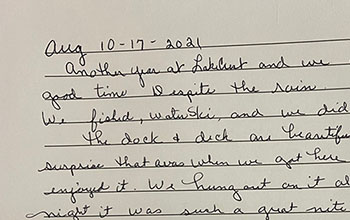 Aug 10-17-2021
Another year at and we
good time Despite the rain.
We fished, waterski, and we did
the dock & deck are beautiful
surprise that was when we got here
enjoyed it. We hung out on it al
night it was such a great nite